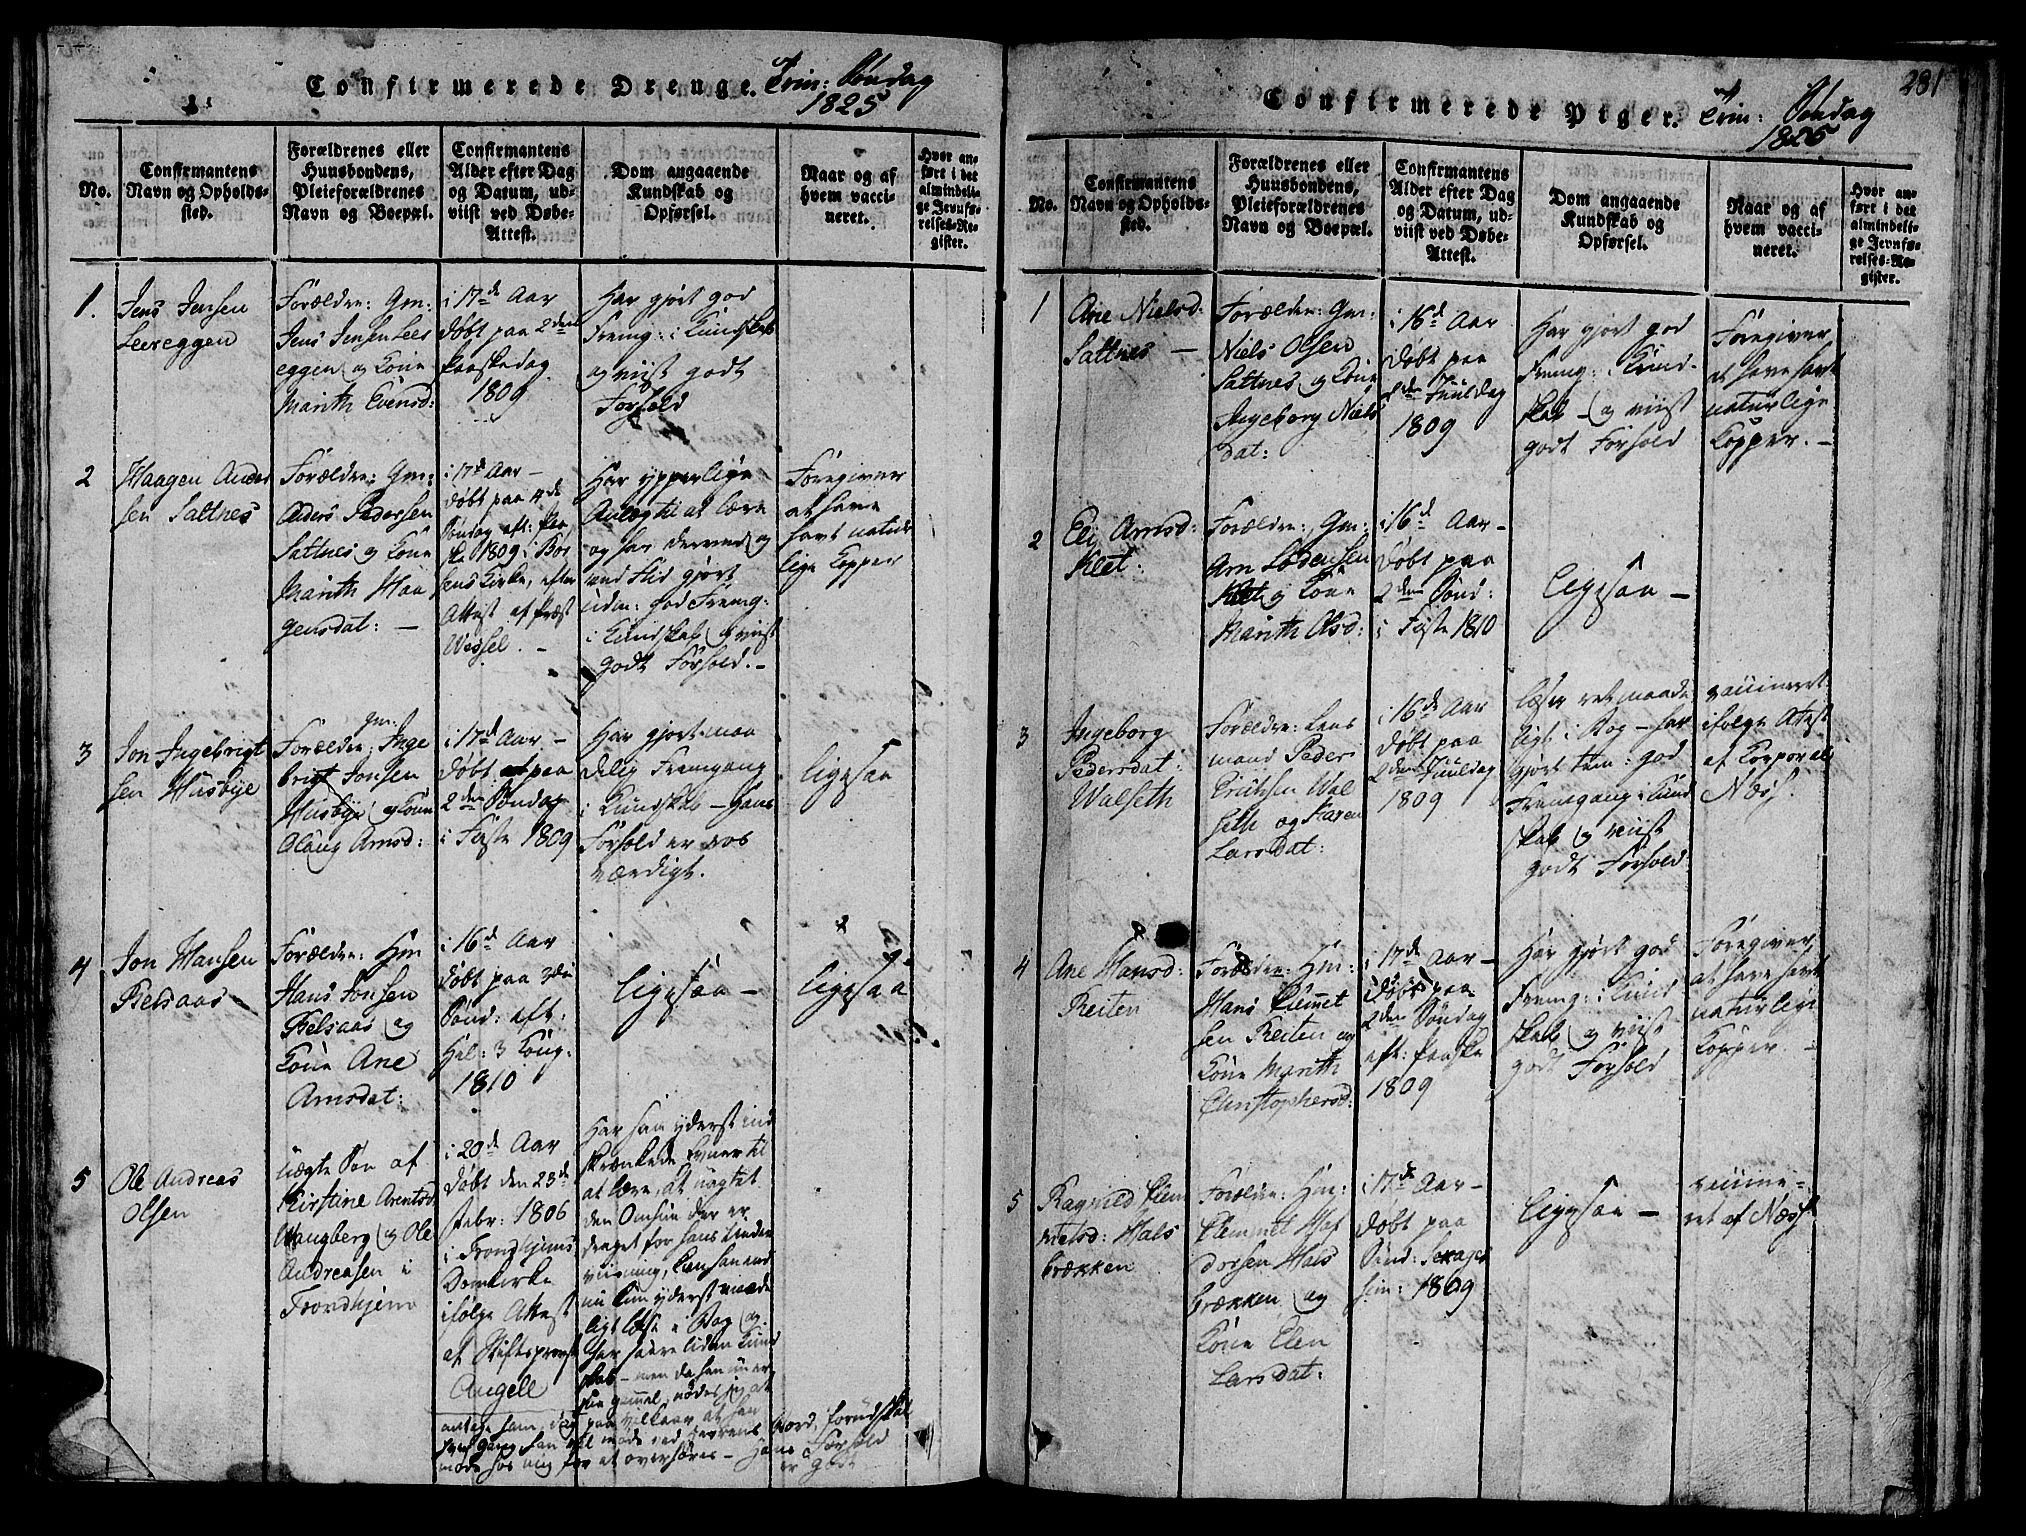 Confirmerede Drenge. Trin: Søndag
1825
No.
Confirmantens
Navn og Opholds-
sted.
Forældrenes eller
Huusbondens,
Pleieforældrenes
Navn og Boepæl.
Confirmantens
Alder efter Dag
og Datum, ud-
viist ved Døbe-
Attest.
Dom angaaende
Kundskab og
Opførsel.
Naar og af
hvem vacci-
neret.
Hvor an-
ført i det
almindeli-
ge Jevnfø-
relses-Re-
gister.
1.
Jens Jensen
Leereggen
Forældre: Gm:
Jens Jensen Leer
eggen og Kone
Marith Evensd:
i 17de Aar
døbt paa 2den
Paaskedag
1809
Har gjort god
Fremg: i Kundskab
og viist godt
Forhold
2
Haagen Ander
sen Saltnes
Forældre: Gm:
Anders Pedersen
Saltnes og Kone
Marith Haa
gensdat: —
i 17de Aar —
døbt paa 4de
Søndag eft: Paa
ske 1809 i Bør
sens Kirke, efter
Attest af Præst
Wessel. —
Har ypperlige
Anlæg til at lære
og har derved og
ved Flid gjort
udm: god Fremg:
i Kundskab og viist
godt Forhold. —
Foregiver
at have
havt natur
lige Kopper
3
Jon Ingebrigt
sen Husbye
Forældre: Gm: Inge
brigt Jonsen
Husbye og Kone
Olaug Arnsd:
i 17de Aar —
døbt paa
2den Søndag
i Faste 1809
Har gjort maa
delig Fremgang
i Kundsk: — Hans
Forhold er ros
værdigt.
ligesaa
4
Jon Hansen
Belsaas
Forældre: Hm
Hans Jonsen
Belsaas og
Kone Ane
Arnsdat:
i 16de Aar
døbt paa 3die
Sønd: eft:
Hel: 3 Kong:
1810
ligesaa —
ligesaa
5
Ole Andreas
Olsen
uægte Søn af
Kirstine Arentsd
Wangberg og Ole
Andreasen i
Trondhjem
i 20de Aar
døbt den 23de
Febr: 1806
i Trondhjems
Domkirke
ifølge Attest
af Stiftsprovst
Angell
Har saa yderst ind
skrænkede Evner til
at lære, at uagtet
den Omhue der er
draget for hans Under
viisning, kan han end
nu kun yderst maade
ligt læse i Bog og
har saare liden Kund
skab — men da han nu er
saa gammel, nødes jeg at
antage ham, dog paa Vilkaar at han
møde hos mig for at overhøres — Hans Forhold
er godt
Confirmerede Piger. Trin: Søndag
1825
281
No.
Confirmantens
Navn og Opholds-
sted.
Forældrenes eller
Huusbondens,
Pleieforældrenes
Navn og Boepæl.
Confirmantens
Alder efter Dag
og Datum, ud-
viist ved Døbe-
Attest.
Dom angaaende
Kundskab og
Opførsel.
Naar og af
hvem vacci-
neret.
Hvor an-
ført i det
almindeli-
ge Jevnfø-
relses-Re-
gister.
1
Ane Nielsd:
Saltnes —
Forældre: Gm:
Niels Olsen
Saltnes og Kone
Ingeborg Niels
dat:
i 16de Aar
døbt paa
2den Juuldag
1809
Har gjort god
Fremg: i Kund-
skab — og viist
godt Forhold
Foregiver
at have havt
naturlige
Kopper. —
2
Eli Arnsd:
Kleet:
Forældre: Gm:
Arn Lodensen
Kleet og Kone
Marith Olsd:
i 16de Aar —
døbt paa
2den Sønd:
i Faste 1810
ligesaa —
3
Ingeborg
Pedersdat:
Walseth
Forældre: Lens
mand Peder
Erichsen Wal
seth og Karen
Larsdat:
i 16de Aar
døbt paa
2den Juuldag
1809
læser ret maade
ligt i Bog — har
gjort tem: god
Fremgang i Kund
skab og viist
godt Forhold
vaccineret
ifølge Attest
af Korporal
Næss.
4
Ane Hansd:
Reiten
Forældre: Hm:
Hans Klemet
sen Reiten og
Kone Marith
Christophersd:
i 17de Aar —
døbt paa
2den Søndag
eft: Paaske
1809
Har gjort god
Fremg: i Kund
skab og viist
godt Forhold
Foregiver
at have havt
naturlige
Kopper —
5
Ragnild Clem
metsd: Hals
brækken
Forældre: Hm:
Clemmet Hal
dorsen Hals
brækken og
Kone Elen
Larsdat:
i 17de Aar —
døbt paa
Sønd: Sexages
sim: 1809
ligesaa —
vaccine-
ret af Næss